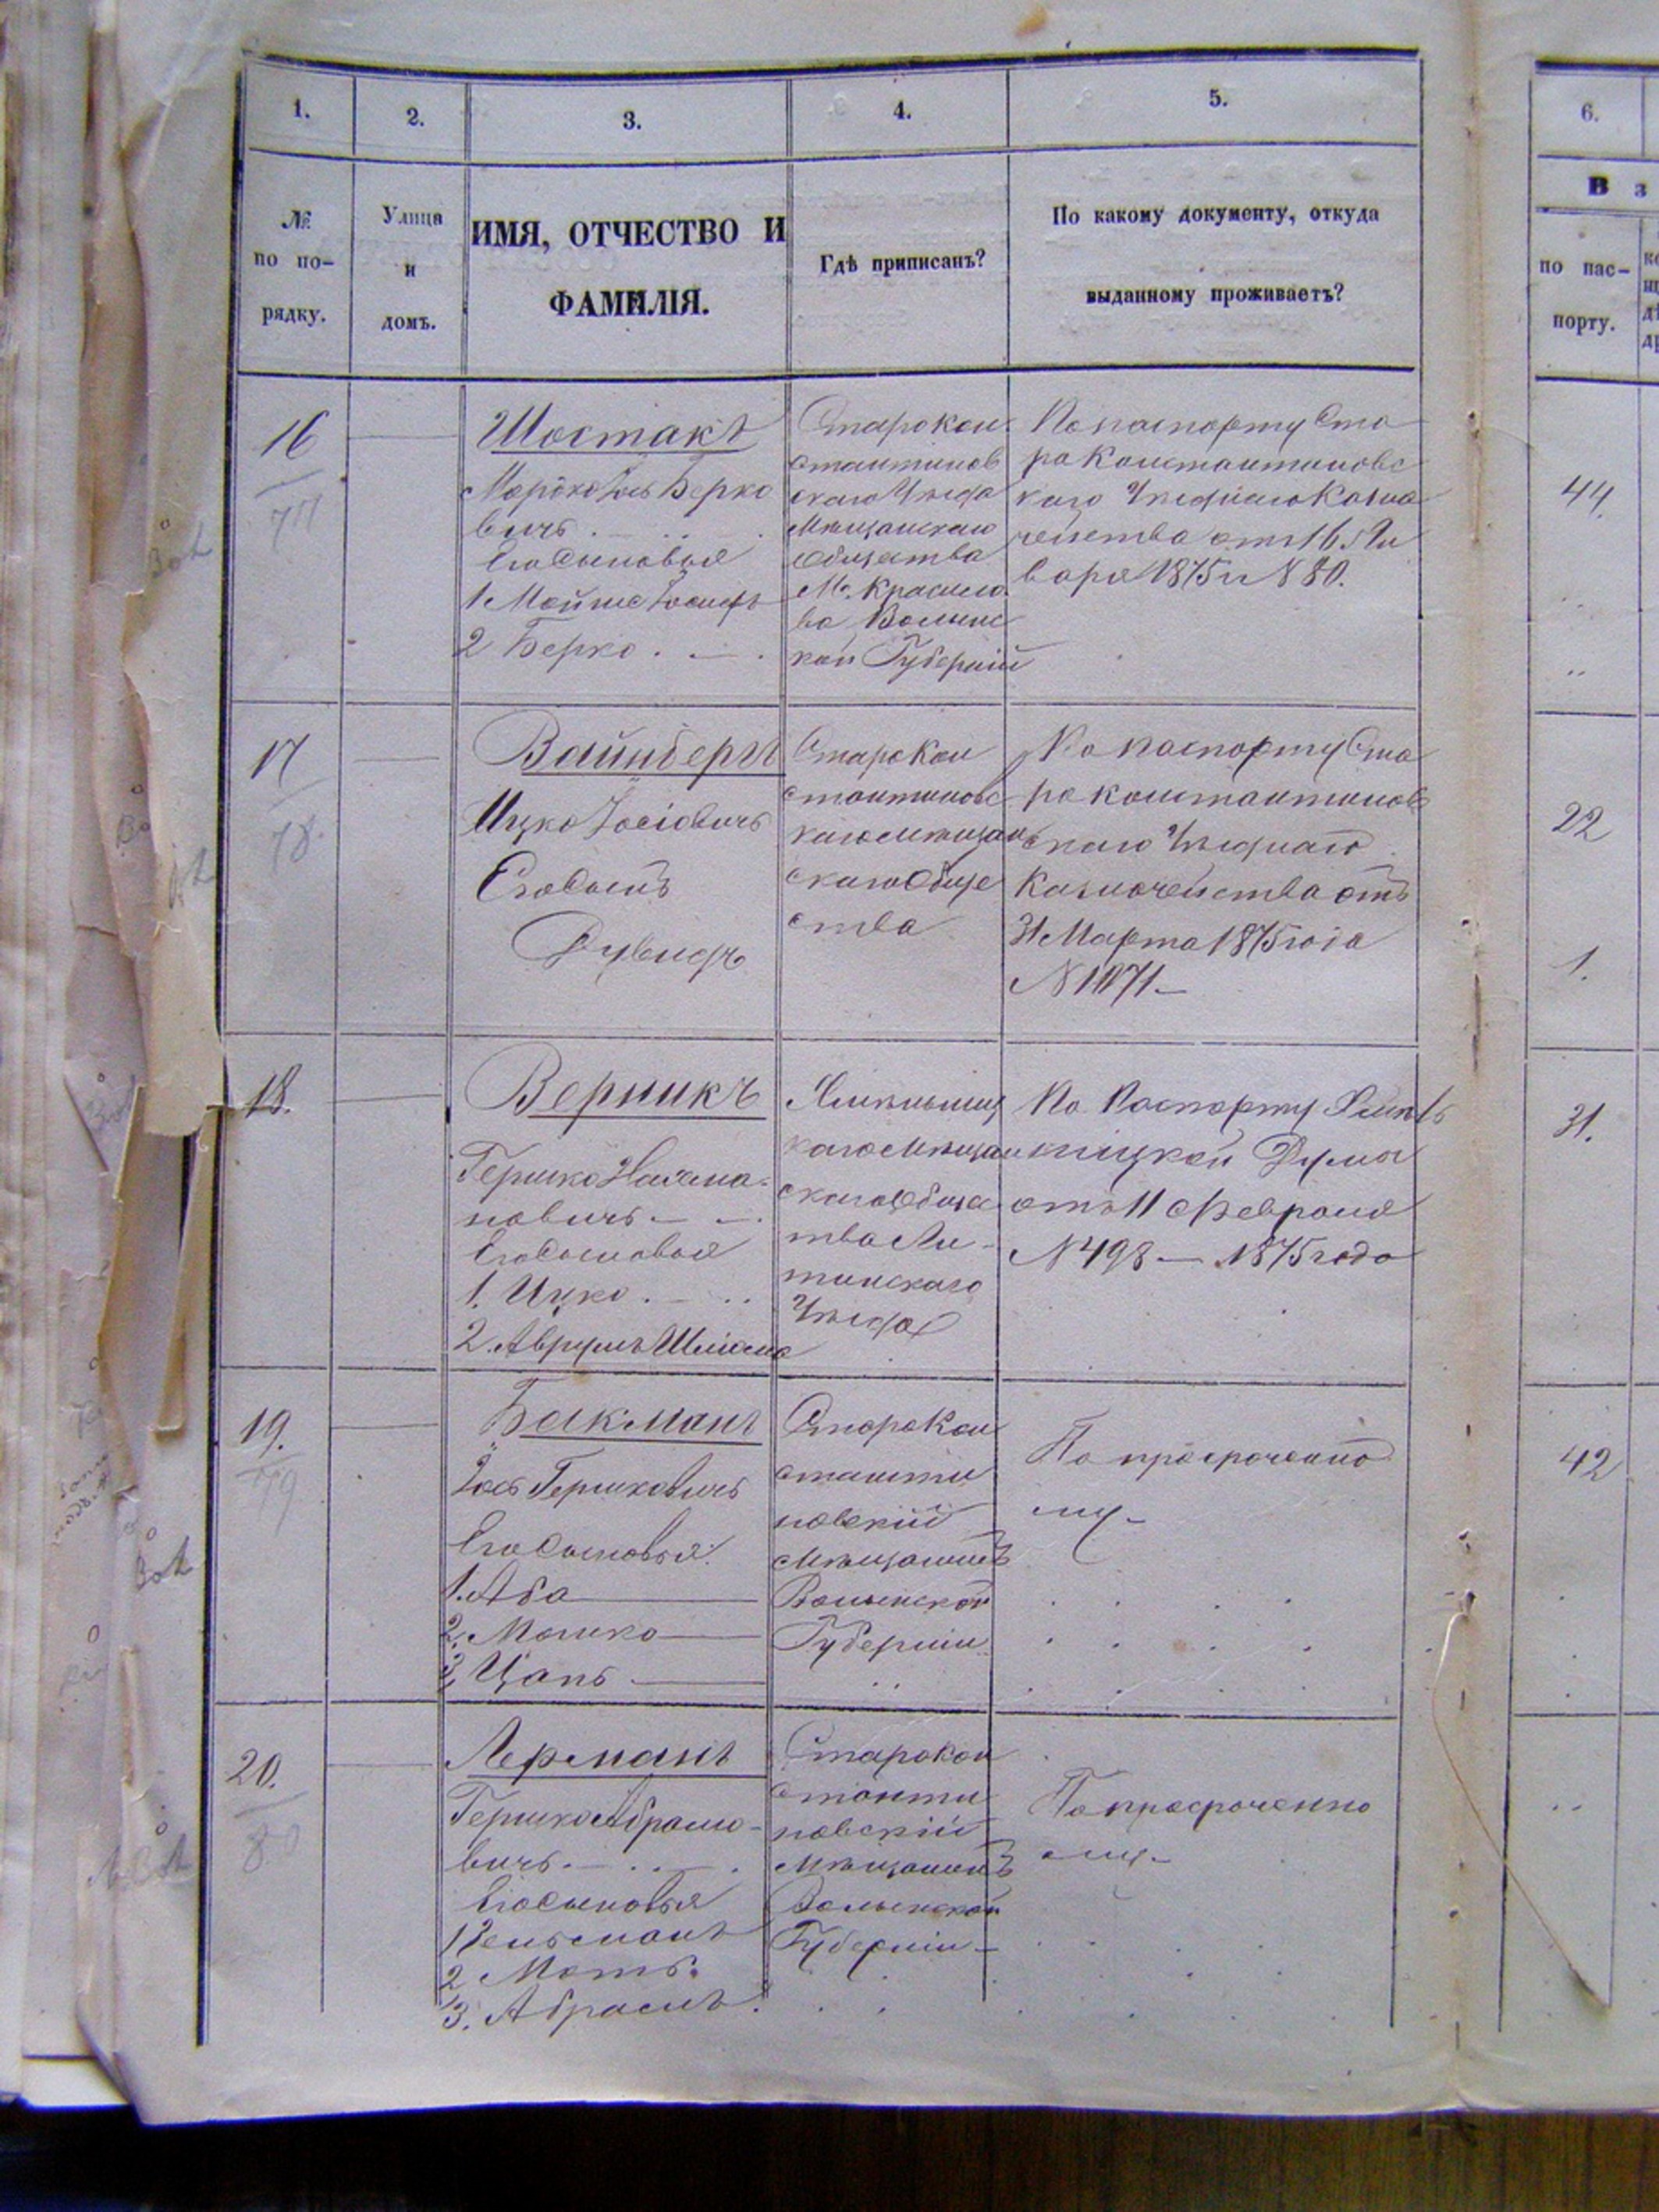 1.
2.
3.
4.
5.
6.
№
по по-
рядку.
Улица
и
домъ.
ИМЯ, ОТЧЕСТВО И
ФАМИЛІЯ.
Гдѣ приписанъ?
По какому документу, откуда
выданному проживаетъ?
В з
по пас-
порту.
16
77
Шостакъ
Мордко Іось Берко
вичъ
Его Сыновья
1 Мойше Іосифъ
2 Берко
Старокон
стантинов
скаго Уѣзда
Мѣщанскаго
Общества
М. Красило
ва Волынс
кой Губерніи
По паспорту Ста
ро Константиновс
каго Уѣзднаго Казна
чейства отъ 16 Ян
варя 1875 г N 80.
44.
17
78.
Вайнберъ
Ицко Іосіовичъ
Его Сынъ
Дувидъ
Старокон
стантиновс
каго мѣщан
скаго Обще
ства
По паспорту Ста
роконстантинов
скаго Уѣзднаго
Казначейства отъ
31 Марта 1875 года
N 1071
22
1.
18.
Верникъ
Гершко Нахма-
новичъ
Его Сыновья
1. Ицко
2. Аврумъ Шліома
Хмѣльниц
каго Мѣщан
скаго Общес
тва Ли-
тинскаго
Уѣзда
По Паспорту Хмѣль
ницкой Думы
отъ 11 Февраля
N 498 — 1875 года
31.
19.
79
Бакманъ
Іось Гершковичъ
Его Сыновья:
1. Аба
2. Мошко
3. Цапъ
Старокон
станти
новскій
Мѣщанинъ
Волынской
Губерніи
По просроченно
му
42
20.
80
Лерманъ
Гершко Абрамо-
вичъ
Его Сыновья
1 Зельманъ
2 Моть
3. Абрамъ
Старокон
станти
новскій
Мѣщанинъ
Волынской
Губерніи
По просроченно
му